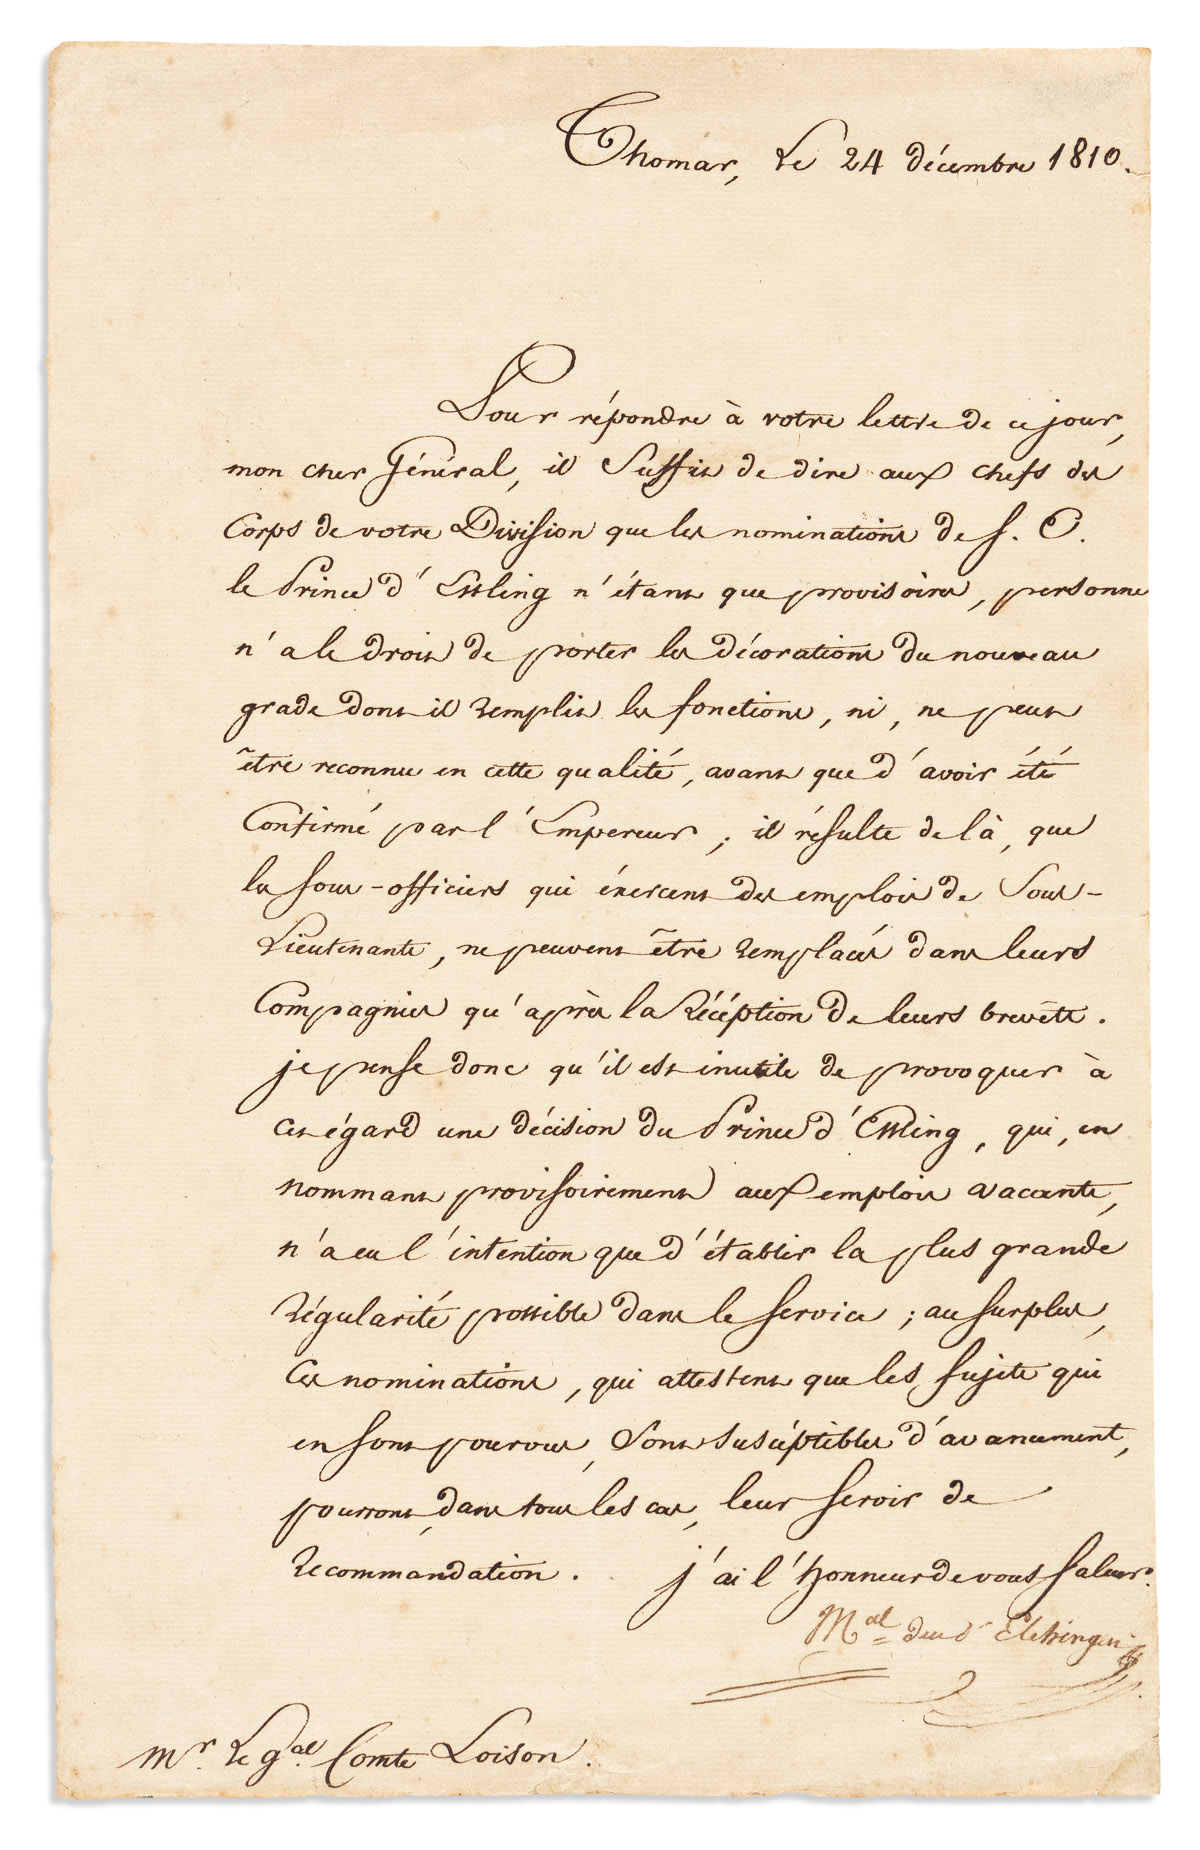 Thomar, Le 24 décembre 1810.
Pour répondre à votre lettre de ce jour,
mon cher Général, il suffit de dire aux chefs des
Corps de votre Division que les nominations de S. E.
le Prince d'Essling n'étant que provisoires, personne
n'a le droit de porter les décorations du nouveau
grade dont il remplit les fonctions, ni, ne peut
être reconnu en cette qualité, avant que d'avoir été
Confirmé par l'Empereur; il résulte de là, que
les sous-officiers qui éxercent des emplois de Sous-
Lieutenants, ne peuvent être remplacés dans leurs
Compagnies qu'après la Récéption de leurs brevêts.
je pense donc qu'il est inutile de provoquer à
cet égard une décision du Prince d'Essling, qui, en
nommant provisoirement aux emplois vacants,
n'a eu l'intention que d'établir la plus grande
Régularité possible dans le service; au surplus,
Ces nominations, qui attestent que les sujets qui
en sont pourvus, sont suscéptibles d'avancement,
pourront, dans tous les cas, leur servir de
Recommandation. j'ai l'honneur de vous saluer.
Mal duc d'Elchingen
Mr. Le gal. Comte Loison.